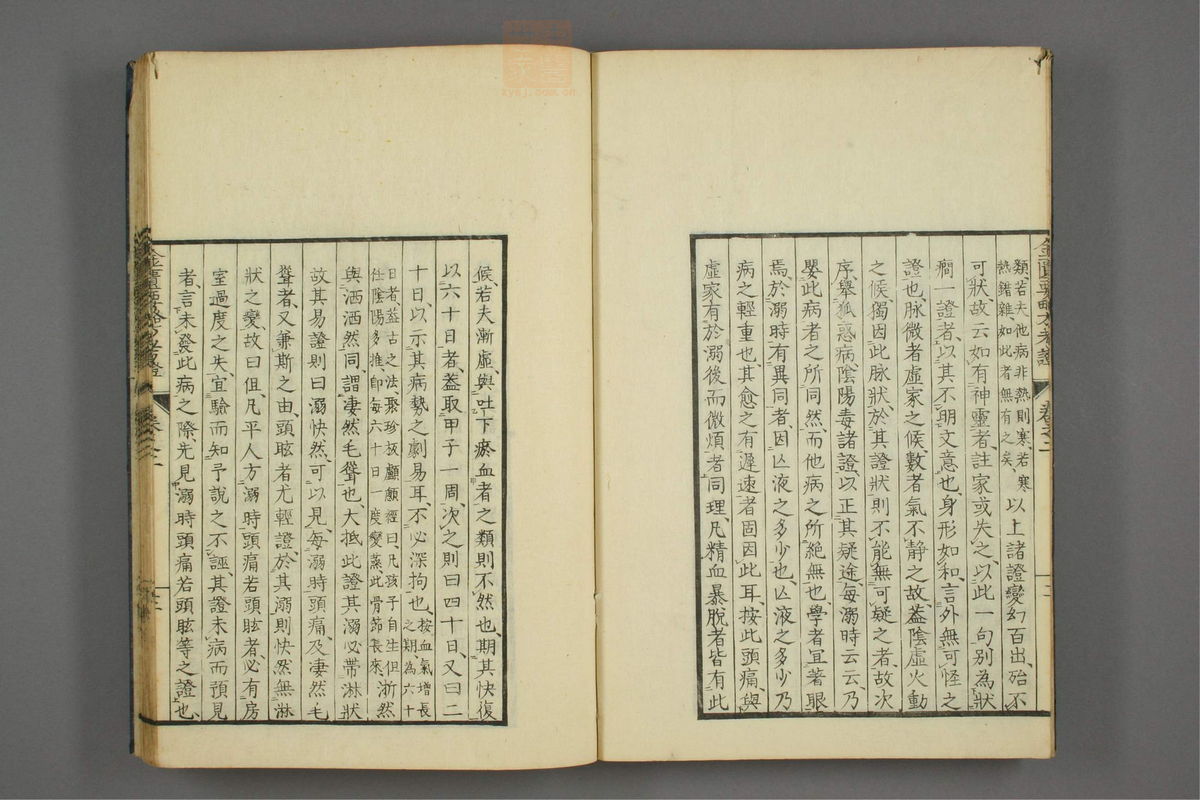 類、若夫他病非熱則寒、若寒
熱錯雜、如此者無有之矣、
以上諸證變幻百出、殆不
可狀、故云如有神靈者、註家或失之、以此一句別為狀
癇一證者、以其不明文意也、身形如和、言外無可怪之
證也、脉微者虛家之候、數者氣不静之故、蓋陰虛火動
之候、獨因此脉狀於其證狀則不能無可疑之者、故次
序、舉狐惑病、陰陽毒諸證、以正其疑途、每溺時云云、乃
嬰此病者之所同然、而他病之所絕無也、學者宜著眼
焉、於溺時有異同者、因亾液之多少也、亾液之多少、乃
病之輕重也、其愈之有遲速者、固因此耳、按此頭痛、與
虛家有於溺後而微煩者同理、凡精血暴脫者皆有此
候、若夫漸虛、與吐下瘀血者之類則不然也、期其快復
以六十日者、蓋取甲子一周、次之則曰四十日、又曰二
十日、以示其病勢之劇易耳、不必深拘也、
按血氣增長
之期、為六十
日者、蓋古之法、聚珍板顱顖經曰、凡孩子自生但
任陰陽多推、即每六十日一度變蒸、此骨節長來、
淅然
與洒洒然同、謂凄然毛聳也、大抵此證其溺必帶淋狀
故其易證則曰溺快然、可以見、每溺時頭痛、及凄然毛
聳者、又兼斯之由、頭眩者尤輕證、於其溺則快然無淋
狀之變、故曰但、凡平人方溺時頭痛若頭眩者、必有房
室過度之失、宜驗而知予說之不誣、其證未病而預見
者、言未發此病之際、先見溺時頭痛若頭眩等之證也、